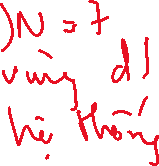 )N = 7
vùng d!
hệ thống